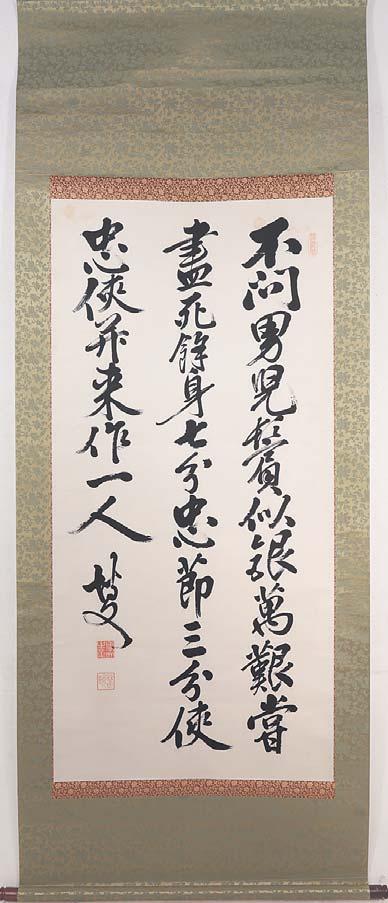 不問男児鬢似銀萬艱嘗
盡死餘身七分忠節三分俠
忠俠并来作一人